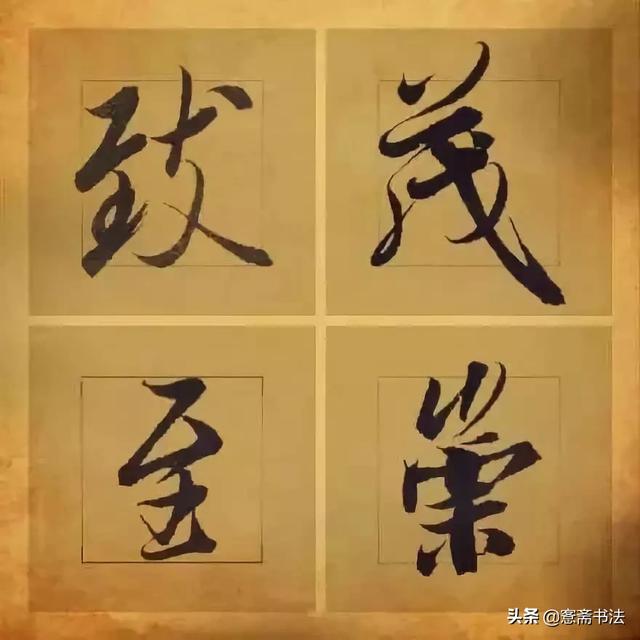 致茂
至崇
头条 @愙斋书法